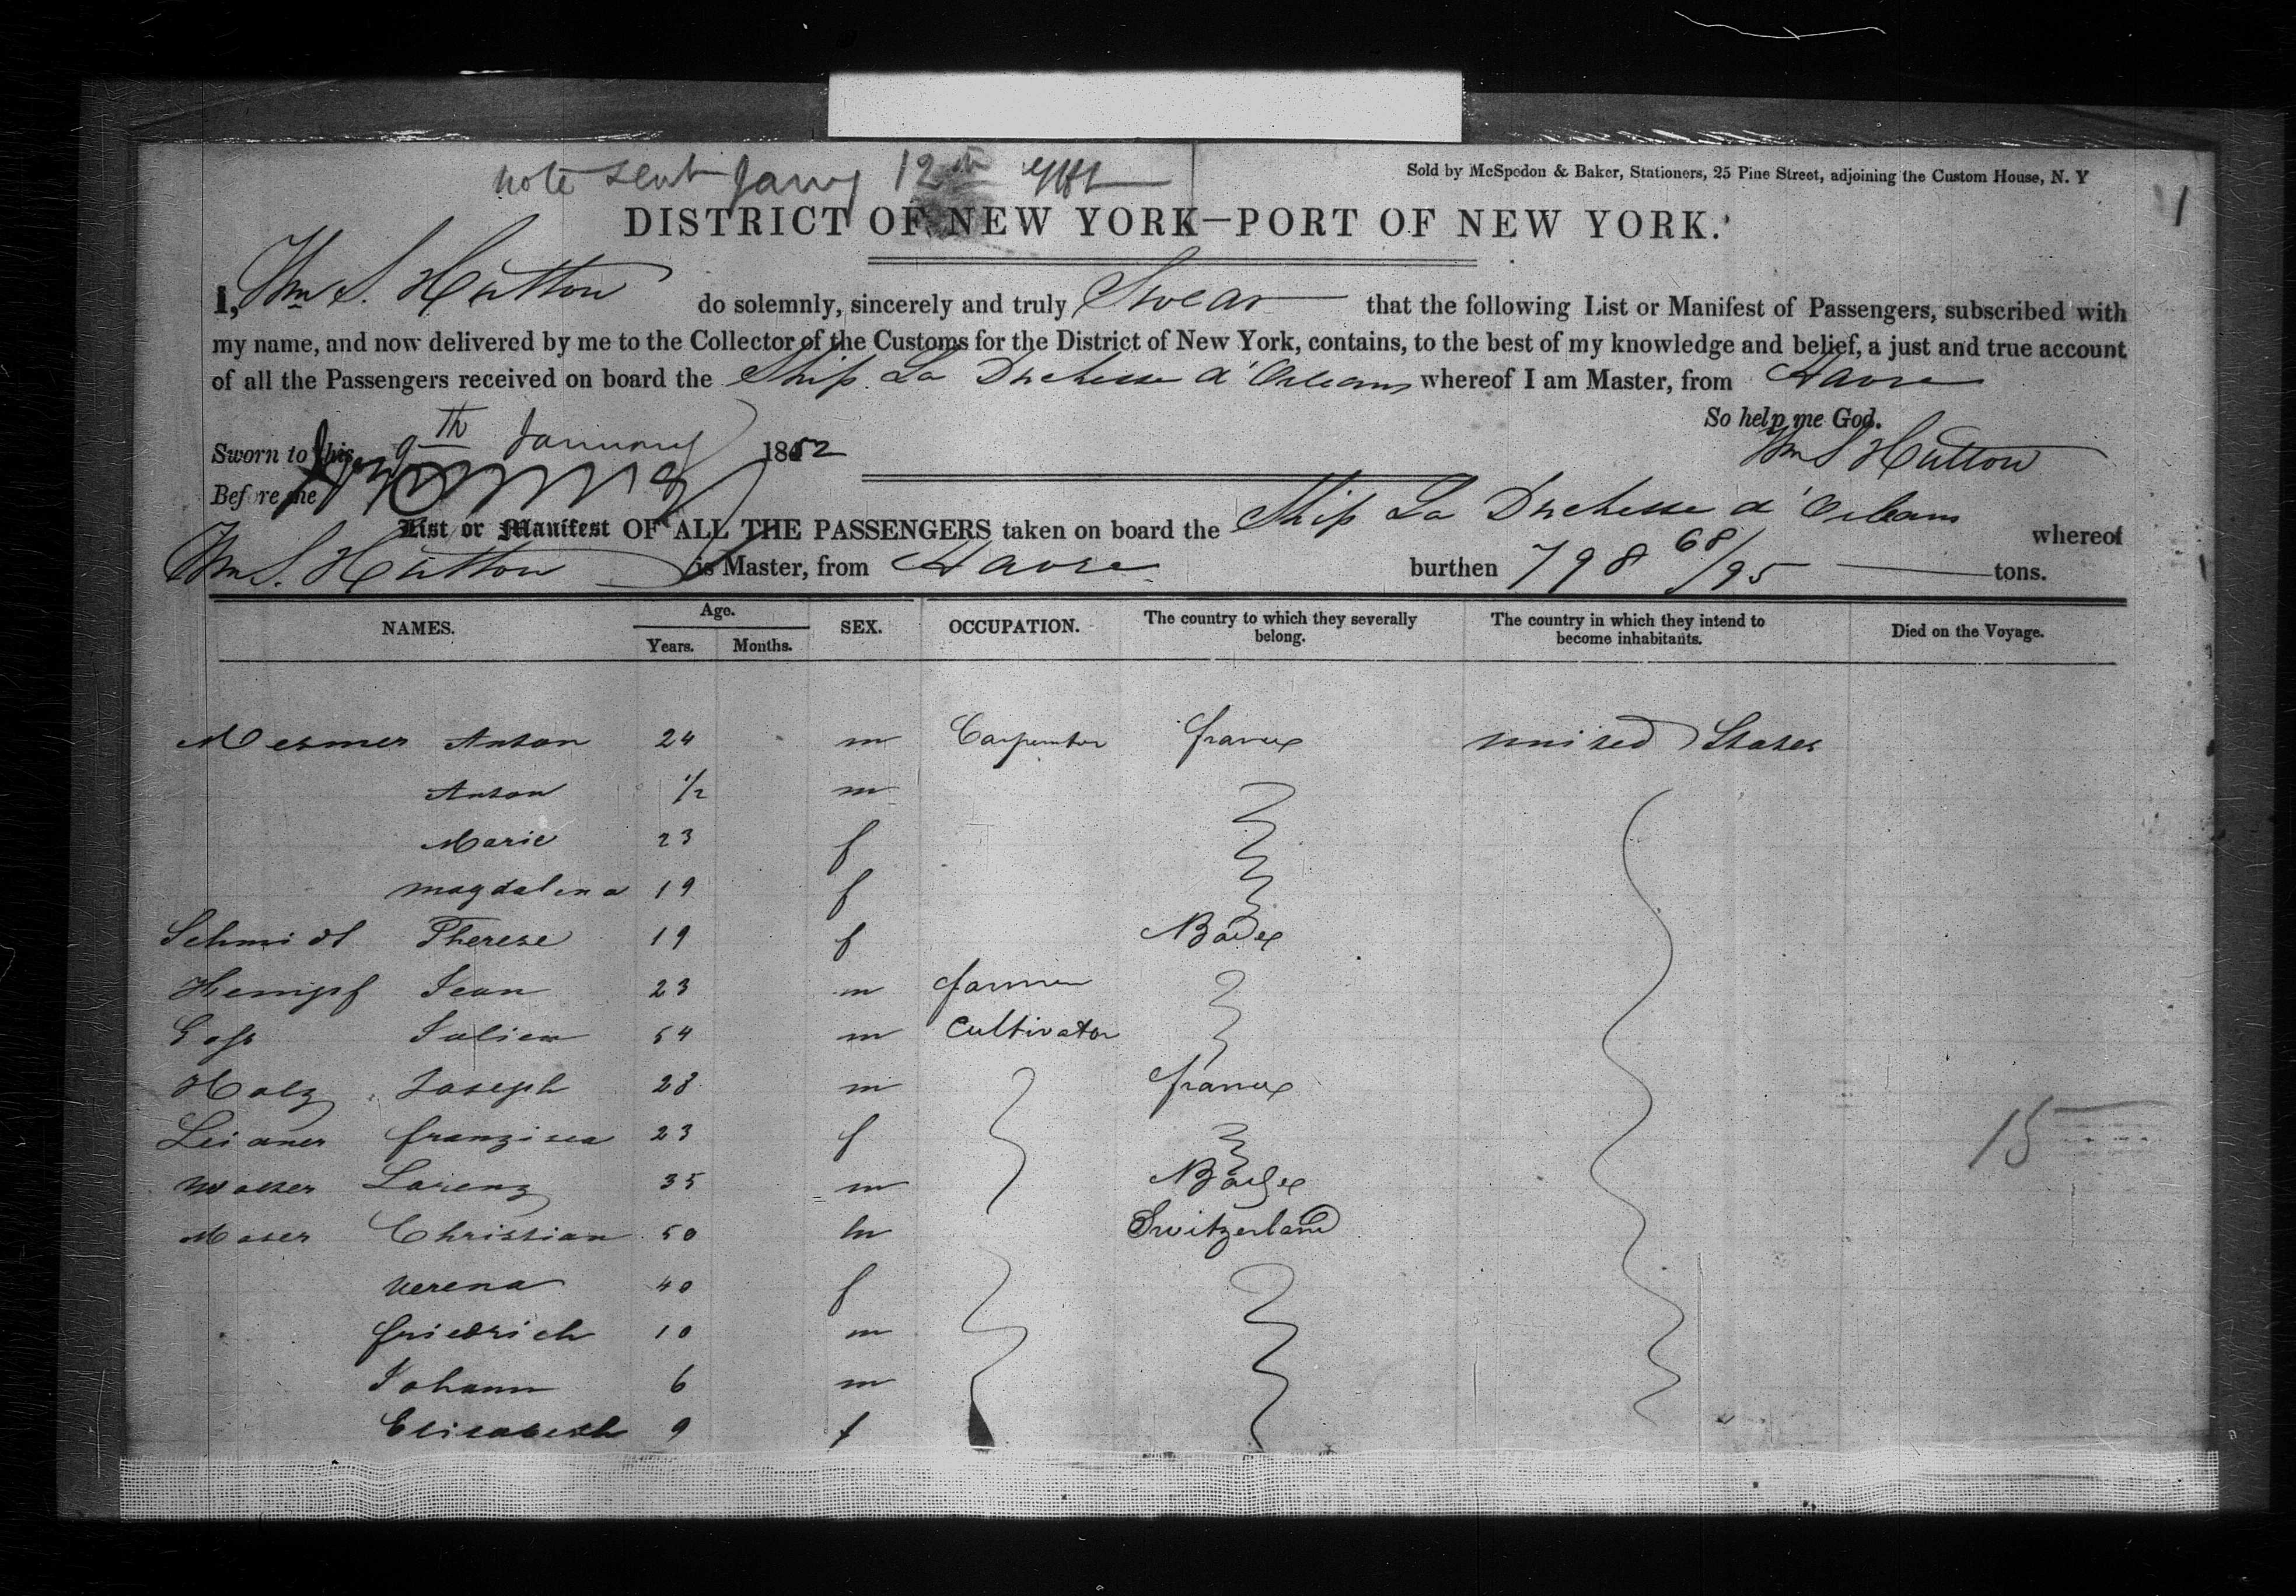 note sent Jany 12th
Sold by McSpedon & Baker, Stationers, 25 Pine Street, adjoining the Custom House, N. Y
1
DISTRICT OF NEW YORK—PORT OF NEW YORK.
I, Wm S. Hutton do solemnly, sincerely and truly Swear that the following List or Manifest of Passengers, subscribed with
my name, and now delivered by me to the Collector of the Customs for the District of New York, contains, to the best of my knowledge and belief, a just and true account
of all the Passengers received on board the Ship La Duchesse d'Orleans whereof I am Master, from Havre
So help me God.
Sworn to this 9th January 1852 Wm S Hutton
Before me
List or Manifest OF ALL THE PASSENGERS taken on board the Ship La Duchesse d'Orleans whereof
Wm S. Hutton is Master, from Havre burthen 798 68/95 tons.
NAMES. Age. Years. Months. SEX. OCCUPATION. The country to which they severally belong. The country in which they intend to become inhabitants. Died on the Voyage.
Mesmer Anton 24 m Carpenter france united States
Anton 1/2 m
Marie 23 f
magdalena 19 f
Schmidt Therese 19 f Baden
Hempf Jean 23 m farmer
Julien 54 m Cultivator
Holz Joseph 28 m france
franzisca 23 f
Lorenz 35 m Baden
Moser Christian 50 m Switzerland
Verena 40 f
friedrich 10 m
Johann 6 m
Elisabeth 9 f
15